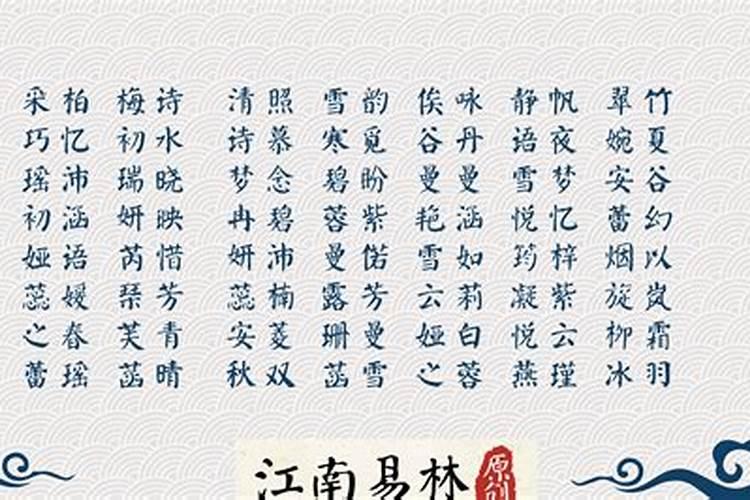 采柏 梅诗 清照 雪韵 俟咏 静帆 翠竹
巧忆 初水 诗慕 寒觅 谷丹 语夜 婉夏
瑶沛 瑞晓 梦念 碧盼 曼曼 雪梦 安谷
初涵 妍映 冉碧 蓉紫 艳涵 悦忆 蕾幻
娅语 芮惜 妍沛 曼偌 雪如 筠梓 烟以
蕊嫒 琹芳 蕊楠 露芳 云莉 凝紫 旋岚
之春 芙青 安菱 珊曼 娅白 悦云 柳霜
蕾瑶 菡晴 秋双 菡雪 之蓉 燕瑾 冰羽
江南易林 原创